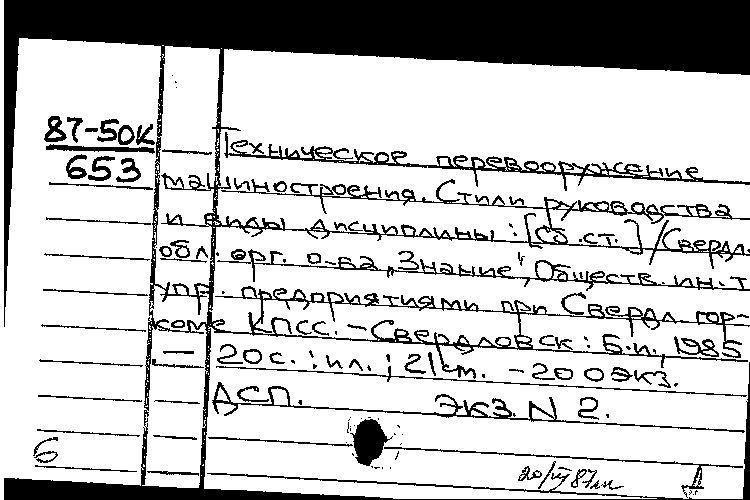 87-50К
653
Техническое перевооружение
машиностроения. Стили руководства
и виды дисциплины : [Сб. ст.] / Свердл.
обл. орг. о-ва „Знание", Обществ. ин-т
упр. предприятиями при Свердл. гор-
коме КПСС. – Свердловск : Б.и., 1985
— 20 с. : ил. ; 21 см. – 200 экз.
ДСП. Экз. N 2.
6